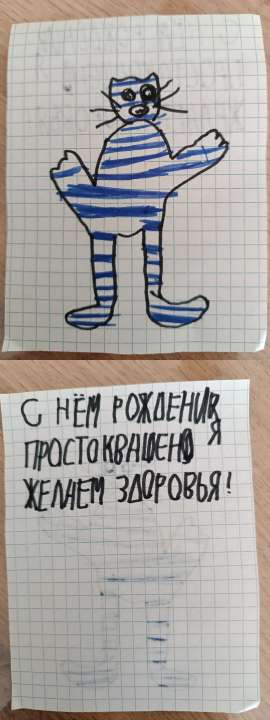 С НЁМ РОЖДЕНИЯ
ПРОСТОКВАШЕНО Я
ЖЕЛАЕМ ЗДОРОВЬЯ!